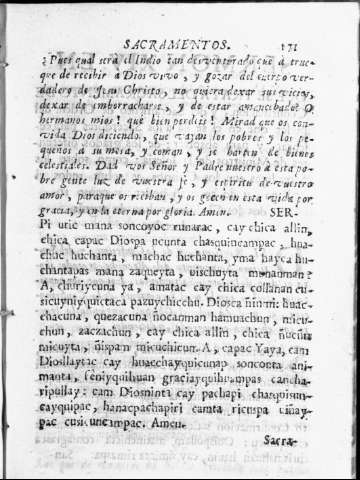 SACRAMENTOS. 131
¿Pues qual será el Indio tan desventurado que á true-
que de recibir á Dios vivo, y gozar del cuerpo ver-
dadero de Jesu Christo, no quiera dexar sus vicios,
dexar de imborracharse, y de estar amancebado? O
hermanos mios! qué bien perdeis! Mirad que os con-
vida Dios diciendo, que vayan los pobres y los pe-
queños á su mesa, y coman, y se harten de bienes
celestiales. Dad vos Señor y Padre nuestro á esta po-
bre gente luz de vuestra fe, y espiritu de vuestro
amor, paraque os reciban, y os gocen en esta vida por
gracia, y en la eterna por gloria. Amen. SER-
Pi utic mana soncoyoc runarac, cay chica allin,
chica capac Diospa ucunta chasquincampac, hua-
chuc huchanta, machac huchanta, yma hayca hu-
chantapas mana zaqueyta, uischuyta munanman?
A, churiycuna ya, amatac cay chica collanan cu-
sicuyniyquictaca pazuychicchu. Diosca ñinmi: huac-
chacuna, quezacuna ñocanman hamuachun, micu-
chun, zaczachun, cay chica allin, chica
micuyta, ñispam micuchicun. A, capac Yaya, cam
Diosllaytac cay huacchayquicunap sonconta ani-
manta, feniyquihuan graciayquihuampas cancha-
ripullay: cam Diosninta cay pachapi chasquisun-
cayquipac, hanacpachapiri camta ricuspa uiñay-
pac cusicuncampac. Amen.
Sacra-